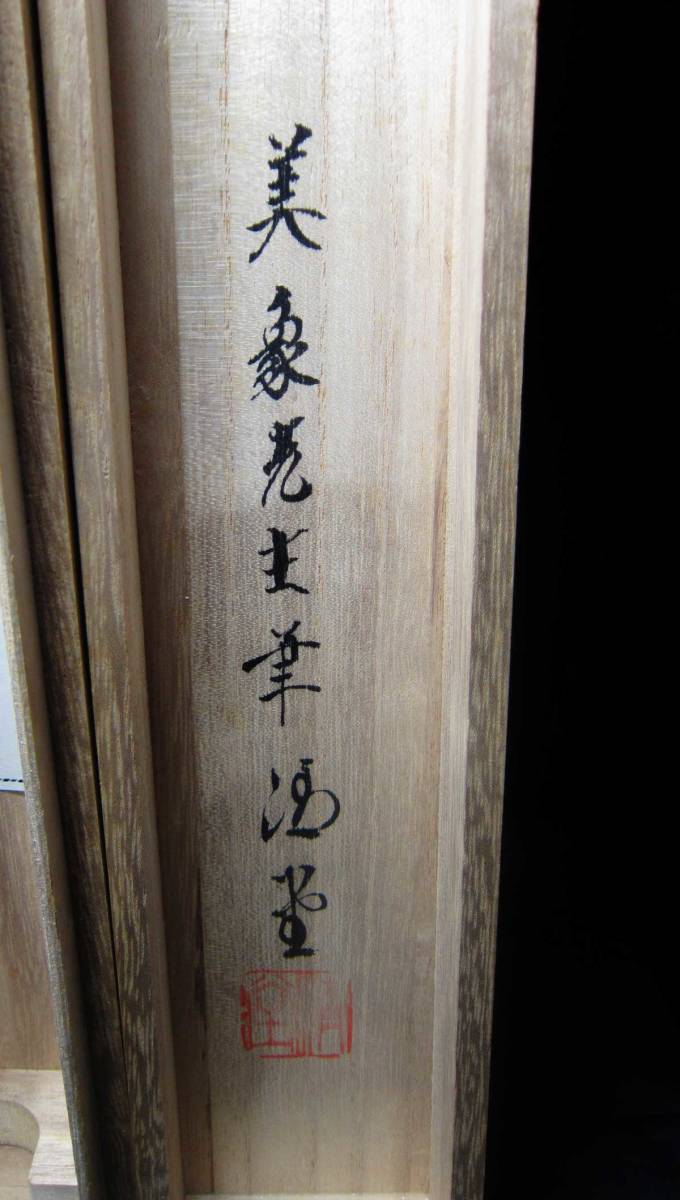 美象先生筆 堂